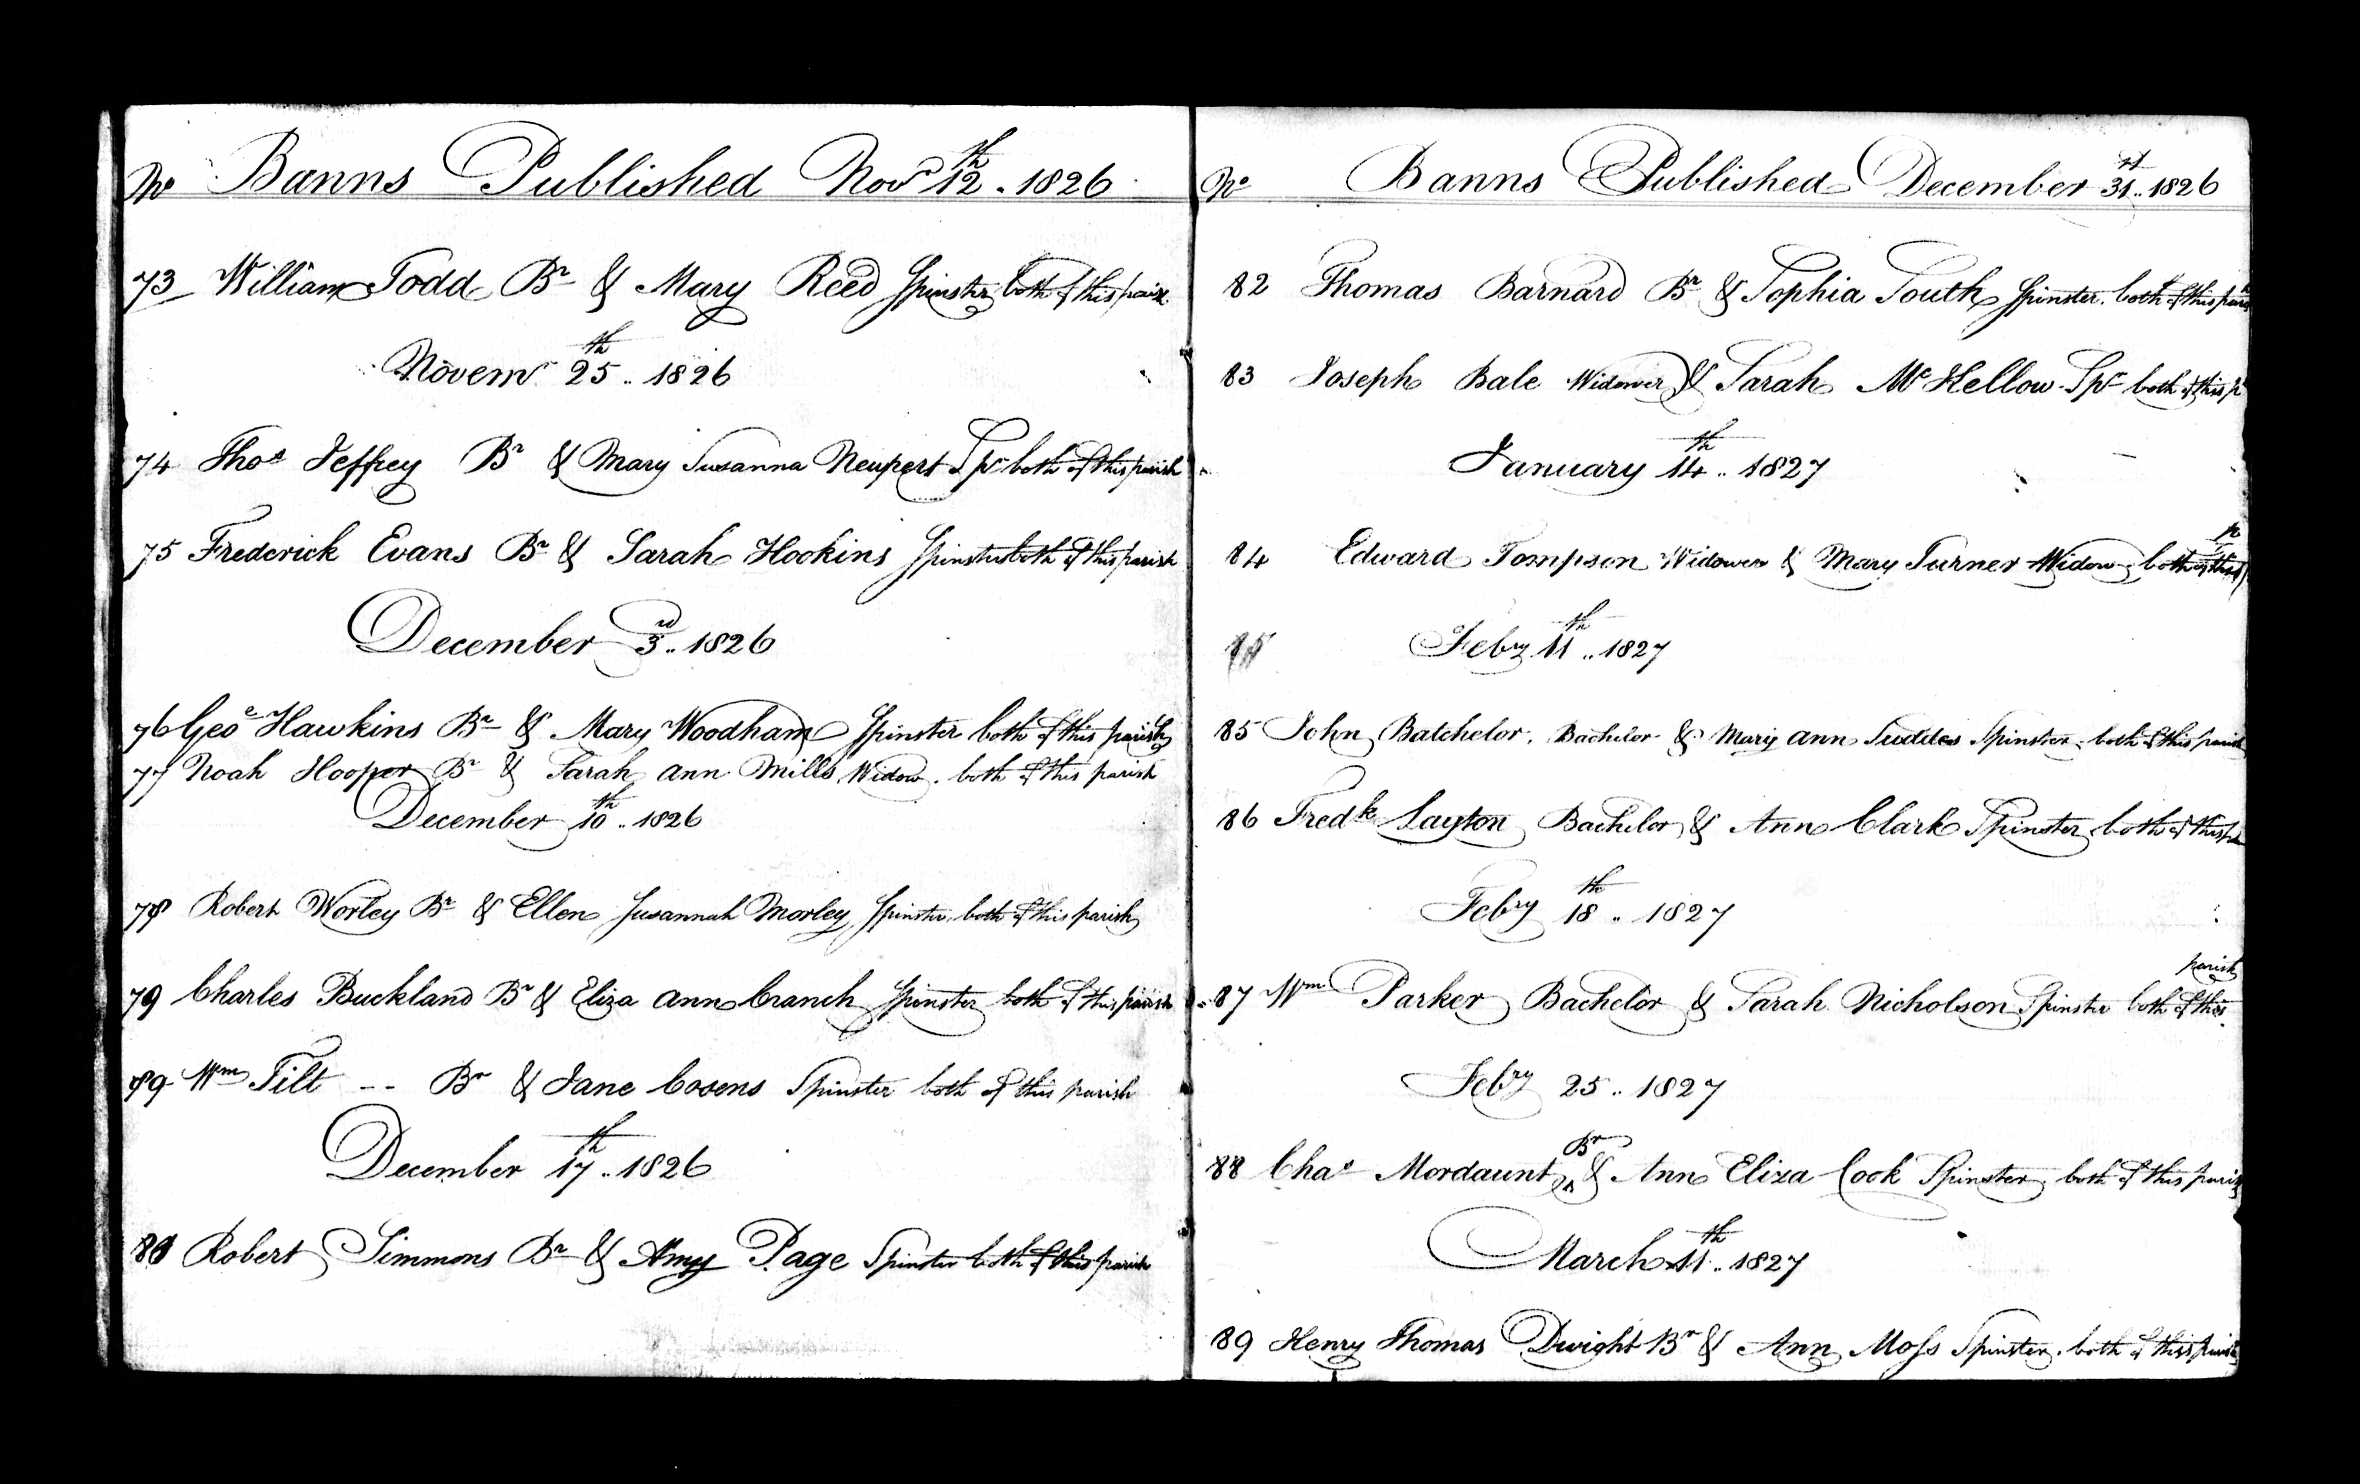 No Banns Published Novr 12th . 1826
73 William Todd Br & Mary Reed Spinster both of this parish
Novemr 25th .. 1826
74 Thos Jeffrey Br & Mary Susanna Neupert Spr both of this parish
75 Frederick Evans Br & Sarah Hookins Spinster both of this parish
December 3rd .. 1826
76 Geoe Hawkins Br & Mary Woodham Spinster both of this parish
77 Noah Hooper Br & Sarah Ann Mills Widow . both of this parish
December 10th .. 1826
78 Robert Worley Br & Ellen Susannah Morley Spinster both of this parish
79 Charles Buckland Br & Eliza Ann Cranch Spinster both of this parish
Wm Tilt -- Br & Jane Cosens Spinster both of this parish
December 17th .. 1826
Robert Simmons Br & Amy Page Spinster both of this parish
No Banns Published December 31st .. 1826
82 Thomas Barnard Br & Sophia South Spinster . both of this parish
83 Joseph Bale Widower & Sarah Mc Hellow Spr both of this p
January 14th .. 1827
84 Edward Tompson Widower & Mary Turner Widow both of this p
Febry 11th .. 1827
85 John Batchelor . Bachelor & Mary Ann Spinster . both of this parish
86 Fredk Layton Bachelor & Ann Clark Spinster both of this
Febry 18th .. 1827
87 Wm Parker Bachelor & Sarah Nicholson Spinster both of this parish
Febry 25 .. 1827
88 Chas Mordaunt Br & Ann Eliza Cook Spinster . both of this parish
March 11th .. 1827
89 Henry Thomas Dwight Br & Ann Moss Spinster . both of this parish